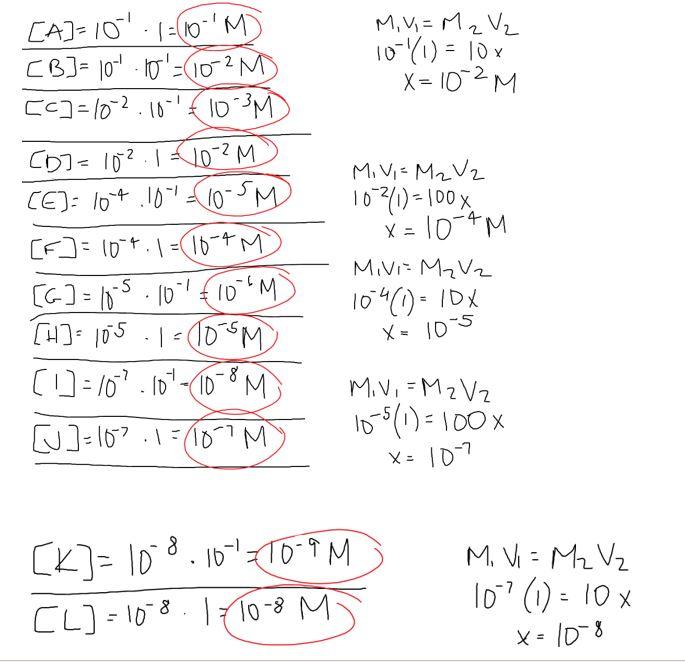 [A] = 10⁻¹ · 1 = 10⁻¹ M
[B] = 10⁻¹ · 10⁻¹ = 10⁻² M
[C] = 10⁻² · 10⁻¹ = 10⁻³ M
[D] = 10⁻² · 1 = 10⁻² M
[E] = 10⁻⁴ · 10⁻¹ = 10⁻⁵ M
[F] = 10⁻⁴ · 1 = 10⁻⁴ M
[G] = 10⁻⁵ · 10⁻¹ = 10⁻⁶ M
[H] = 10⁻⁵ · 1 = 10⁻⁵ M
[I] = 10⁻⁷ · 10⁻¹ = 10⁻⁸ M
[J] = 10⁻⁷ · 1 = 10⁻⁷ M
M₁V₁ = M₂V₂
10⁻¹(1) = 10x
x = 10⁻² M
M₁V₁ = M₂V₂
10⁻²(1) = 100x
x = 10⁻⁴ M
M₁V₁ = M₂V₂
10⁻⁴(1) = 10x
x = 10⁻⁵
M₁V₁ = M₂V₂
10⁻⁵(1) = 100x
x = 10⁻⁷
[K] = 10⁻⁸ · 10⁻¹ = 10⁻⁹ M
[L] = 10⁻⁸ · 1 = 10⁻⁸ M
M₁V₁ = M₂V₂
10⁻⁷(1) = 10x
x = 10⁻⁸